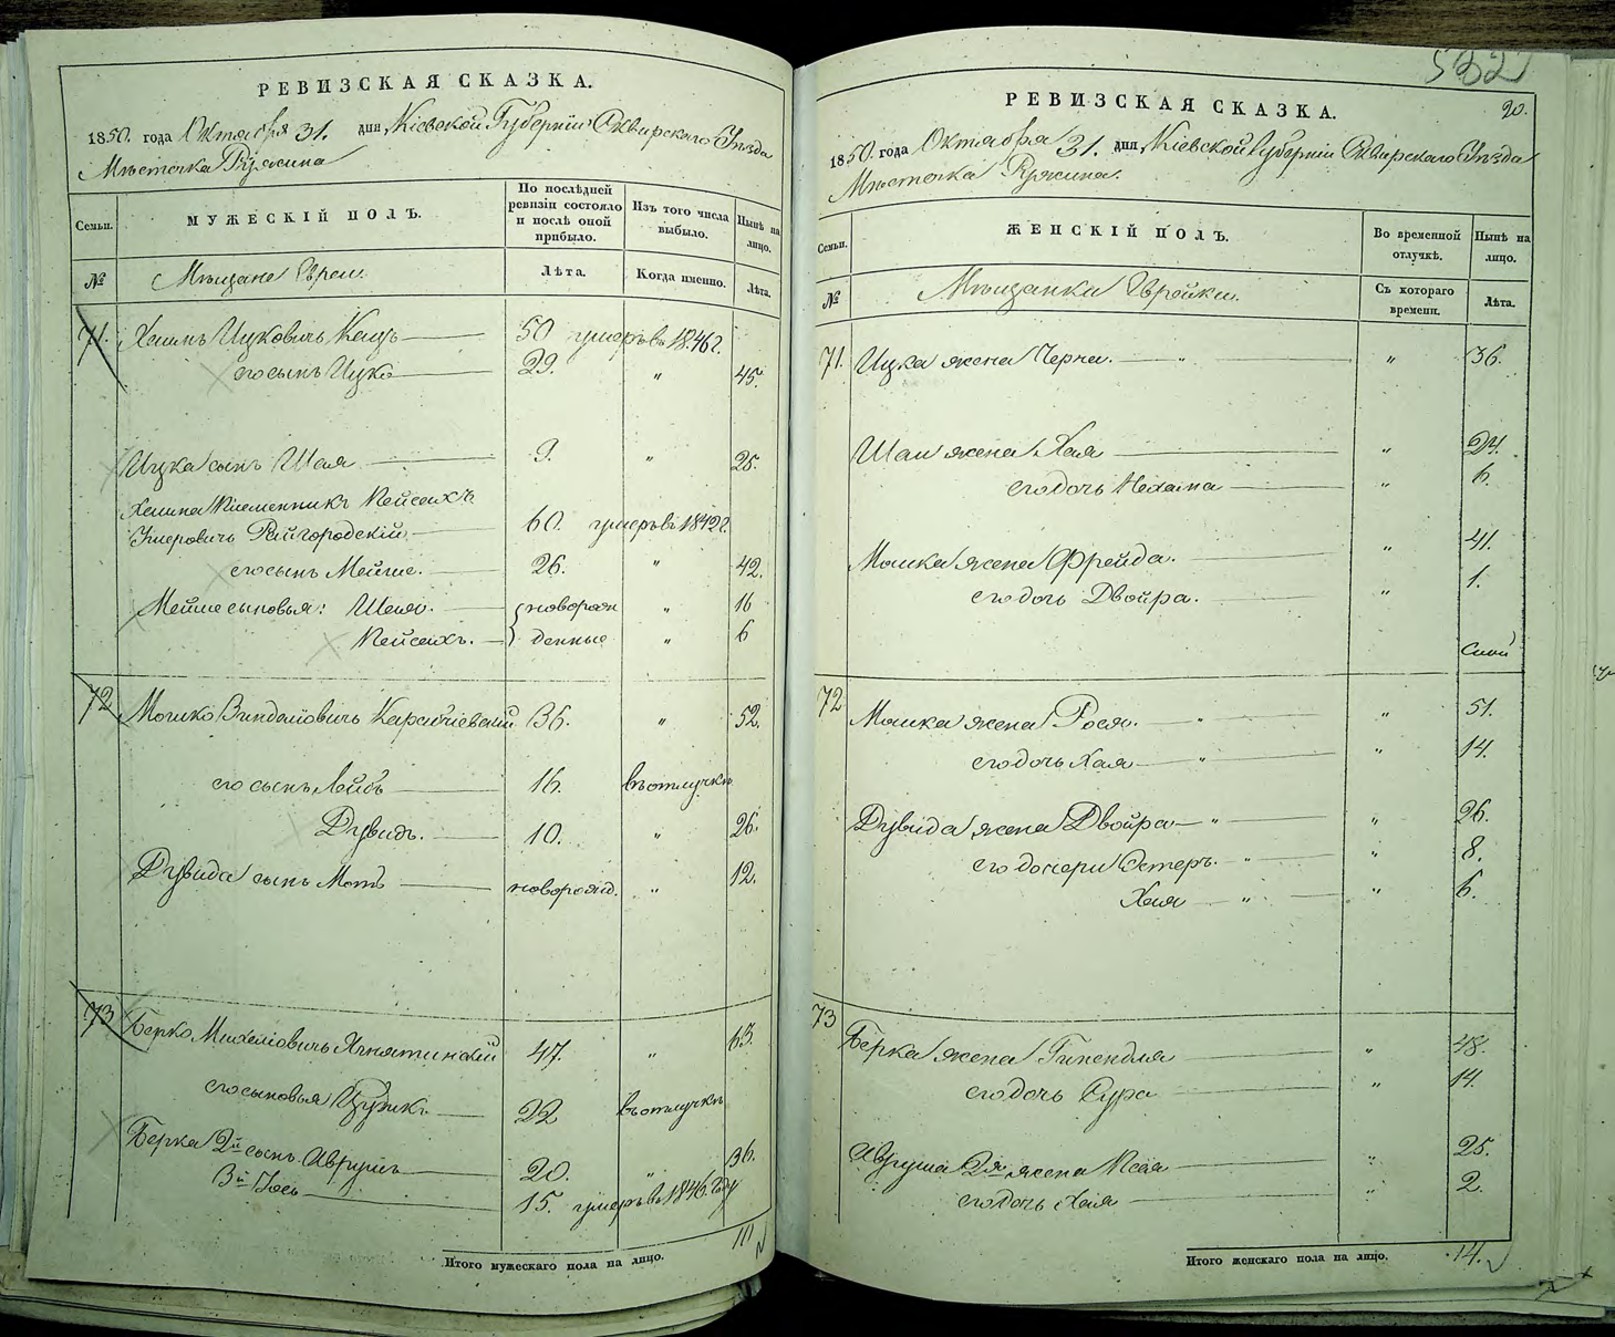 РЕВИЗСКАЯ СКАЗКА.
1850. года Октября 31. дня Кіевской Губерніи Сквирскаго Уѣзда
Мѣстечка Ружина
Семьи. МУЖЕСКІЙ ПОЛЪ. По послѣдней ревизіи состояло и послѣ оной прибыло. Изъ того числа выбыло. Нынѣ на лицо.
№ Мѣщане Евреи. Лѣта. Когда именно. Лѣта.
71. Хаимъ Ицковичъ 50 умеръ въ 1846 г.
его сынъ Ицко 29. " 45.
Ицка сынъ Шая 9. " 25.
Хаима Племенникъ Пейсахъ
Райгородскій 60. умеръ въ 1842 г.
его сынъ Мейше. 26. " 42.
Мейше сыновья: Шая. новорож " 16
Пейсахъ. денные " 6
72 Мошко 36. " 52.
его сынъ Лейбъ 16. въ отлучкѣ
Дувидъ. 10. " 26.
Дувида сынъ Мотъ новорожд. " 12.
73 Берко 47. " 63.
его сыновья 22 въ отлучкѣ
Берка 2й сынъ Аврумъ 20. " 36.
3й Іось 15. умеръ въ 1846. году
Итого мужескаго пола на лицо.
532
20.
РЕВИЗСКАЯ СКАЗКА.
1850. года Октября 31. дня Кіевской Губерніи Сквирскаго Уѣзда
Мѣстечка Ружина.
Семьи. ЖЕНСКІЙ ПОЛЪ. Во временной отлучкѣ. Нынѣ на лицо.
№ Мѣщанки Еврейки. Съ котораго времени. Лѣта.
71. Ицка жена Черна. " " 36.
Шаи жена Хая " 24.
его дочь Нехама " 6.
Мошка жена Фрейда. " 41.
его дочь Двойра. " 1.
72 Мошка жена Рося. " " 51.
его дочь Хая " " 14.
Дувида жена Двойра " " 26.
его дочери Эстеръ. " " 8.
Хая " " 6.
73 Берка жена " 48.
его дочь Сура " 14.
Авруша 2я жена " 25.
его дочь Хая " 2.
Итого женскаго пола на лицо. 14.